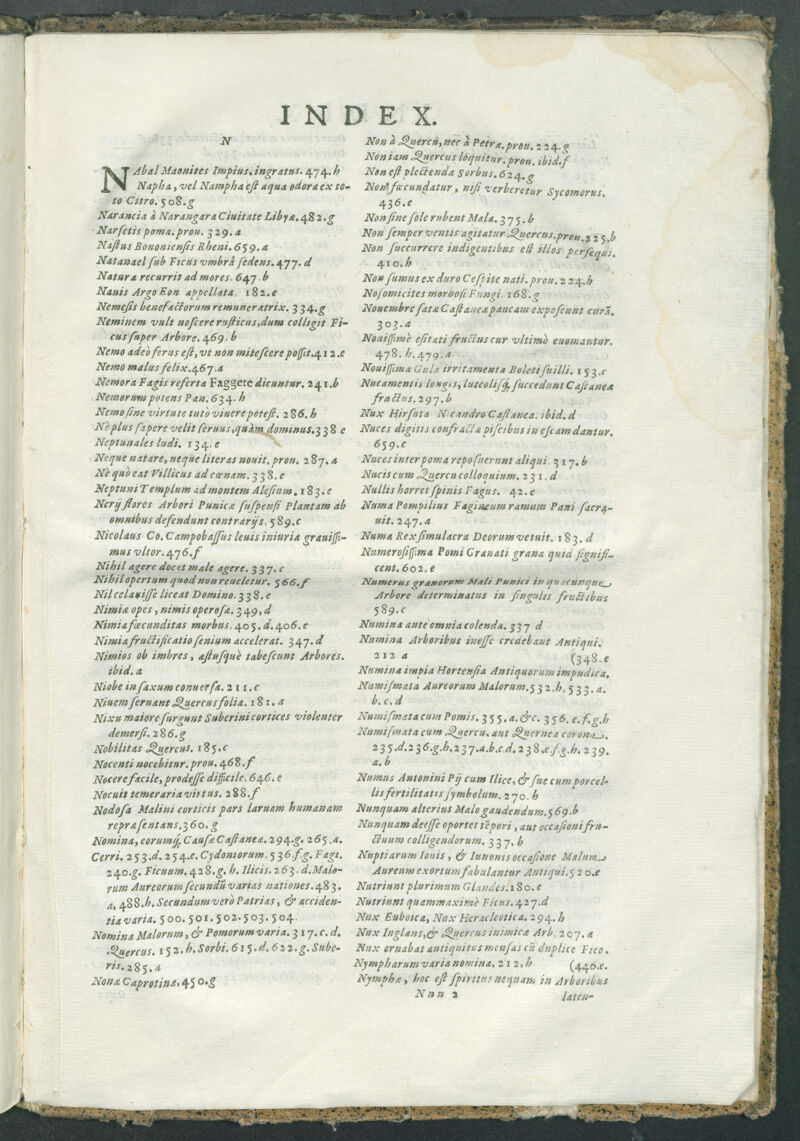 INDEX.
N
NAbal Maonites Impius.ingratus.474.h
Napha, vel Nampha est aqua odora ex to-
to Citro.508.g
Narancia à Narangara Ciuitate Libyæ.482.g
Narsetis poma.prou. 329.a
Nastus Bononiensis Rheni.659.a
Natanael sub Ficus vmbrâ sedens.477.d
Natura recurrit ad mores.647.b
Nauis Argo Eon appellata 182.e
Nemesis benefactorum remuneratrix. 334.g
Neminem vult noscere rusticus,dum colligit Fi-
cus super Arbore.469.b
Nemo adeò ferus est,vt non mitescere possit.412.e
Nemo malus felix.467.a
Nemora Fagis referta Faggete dicuntur. 241.b
Nemorum potens Pan.634.h
Nemo sine virtute tutò viuere potest. 286.h
Nè plus sapere velit seruus,quàm dominus.338.e
Neptunales ludi. 134.e
Neque natare, neque literas nouit. prou. 287.a
Nè quò eat Villicus ad cœnam.338.e
Neptuni Templum ad montem Alesium.183.e
Nerij flores Arbori Punicæ suspensi Plantam ab
omnibus defendunt contrarijs.589.c
Nicolaus Co. Campobassus leuis iniuria grauissi-
mus vltor.476.f
Nihil agere docet male agere. 337.c
Nihil opertum quod non reueletur. 566.f
Nil celauisse liceat Domino.338.e
Nimiæ opes, nimis operosæ.349.d
Nimia fœcunditas morbus.405.d.406.e
Nimia fructificatio senium accelerat. 347.d
Nimios ob imbres, æstusquè tabescunt Arbores.
ibid.a
Niobe in saxum conuersa.211.c
Niuem seruant Quercus folia.181.a
Nixu maiore surgunt Suberini cortices violenter
demersi.286.g
Nobilitas Quercus. 185.c
Nocenti nocebitur.prou.468.f
Nocere facile, prodesse difficile.646.e
Nocuit temeraria virtus. 288.f
Nodosa Malini corticis pars laruam humanam
repræsentans.360.g
Nomina, eorumq; Causæ Castaneæ.294.g. 265.a.
Cerri. 253.d.254.e.Cydoniorum.536.f.g. Fagi.
240.g. Ficuum.428.g.h. Ilicis.263.d.Malo-
rum Aureorum secundũ varias nationes.483.
a.488.h. Secundum verò Patrias, & acciden-
tia varia. 500.501.502.503.504.
Nomina Malorum, & Pomorum varia.317.c.d.
Quercus. 152.h.Sorbi.615.d.622.g.Sube-
ris.285.a
Nonæ Caprotinæ.450.g
Non à Quercu, nec à Petra.prou.224.g
Non iam Quercus loquitur.prou.ibid.f
Non est plectenda Sorbus.624.g
Non fœcundatur, nisi verberetur Sycomorus.
436.e
Non sine sole rubent Mala.375.b
Non semper ventis agitatur Quercus.prou.225.b
Non succurrere indigentibus est illos persequi.
410.h
Non sumus ex duro Cespite nati. prou.224.h
Nosomicites morbosi Fungi.168.g
Nouembre satæ Castaneæ paucam exposcunt curã.
303.a
Nouissimè esitati fructus cur vltimò euomantur.
478.h.479.a
Nouissima Gulæ irritamenta Boleti suilli. 153.c
Nucamentis longis, luteolisq; succedunt Castaneæ
fructus.297.b
Nux Hirsuta Nicandro Castanea. ibid.d
Nuces digitis confractæ piscibus in escam dantur.
659.c
Nuces inter poma reposuerunt aliqui.317.b
Nucis cum Quercu colloquium.231.d
Nullis horret spinis Fagus. 42.e
Numa Pompilius Fagineum ramum Pani sacra-
uit.247.a
Numa Rex simulacra Deorum vetuit. 183.d
Numerosissima Pomi Granati grana quid signifi-
cent.602.e
Numerus granorum Mali Punici in quacunque
Arbore determinatus in singulis fructibus
589.c
Numina ante omnia colenda. 337 d
Numina Arboribus inesse credebant Antiqui.
212 a (348.e
Numina impia Hortensia Antiquorum impudica.
Numismata Aureorum Malorum.532.h.533.a.
b.c.d
Numismata cum Pomis.355.a.&c. 356.e.f.g.h
Numismata cum Quercu, aut Quernea corona.
235.d.236.g.h.237.a.b.c.d.238.e.f.g.h. 239.
a.b
Numus Antonini Pij cum Ilice, & sue cum porcel-
lis fertilitatis symbolum.270.h
Nunquam alterius Malo gaudendum.569.b
Nunquam deesse oportet tẽpori, aut occasioni fru-
ctuum colligendorum. 337.b
Nuptiarum Iouis, & Iunonis occasione Malum
Aureum exortum fabulantur Antiqui.520.e
Nutriunt plurimum Glandes.180.e
Nutriunt quammaximè Ficus.427.d
Nux Euboica, Nux Heracleotica.294.h
Nux Iuglans,& Quercus inimicæ Arb.207.a
Nux ornabat antiquitus mensas cũ duplice Fico.
Nympharum varia nomina.212.h (446.e.
Nymphæ, hoc est spiritus nequam in Arboribus
Nnn 2 laten-